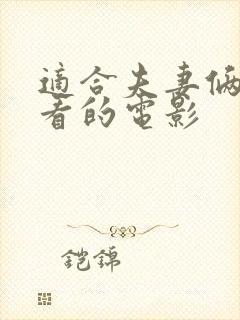 適合夫妻倆
看的電影
鎧錦